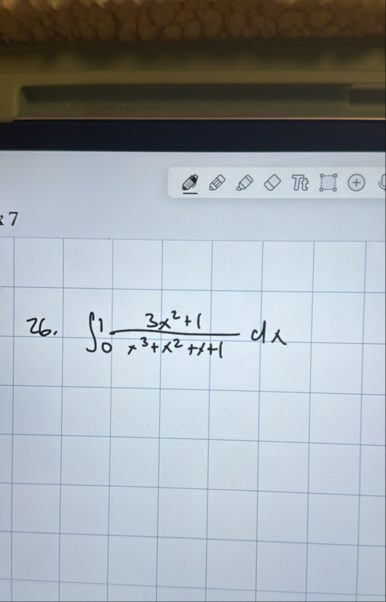 Tt
7
26. ∫₀¹ (3x²+1)/(x³+x²+x+1) dx